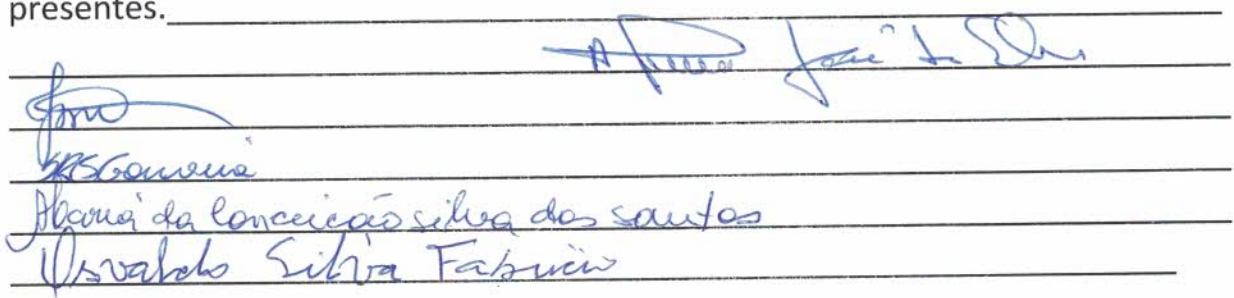 presentes.
José da Silva
SRSGouveia
Maria da Conceição silva dos santos
Osvaldo Silva Fabrício